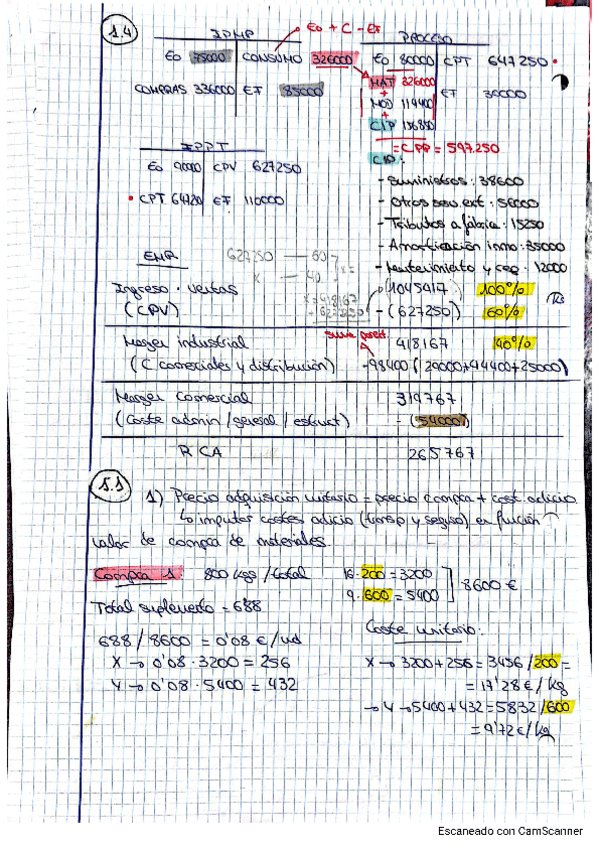 1.4
IPMP
Eo + C - Ef
PROCESO
Eo 75000 CONSUMO 326000
Eo 80000 CPT 647250
COMPRAS 336000 Ef 85000
MAT 326000
+
MOD 114400
+
CIP 156850
Ef 30000
= CPP = 597.250
IPPT
Eo 90000 CPV 627250
CPT 64720 Ef 110000
CIP:
- Suministros: 38600
- Otros serv. ext: 56000
- Tributos a fábrica: 15250
- Amortización inmo: 35000
- Mantenimiento y rep: 12000
EMR 627250 — 60
x — 40
x = 418167
+ 627250
Ingreso. Ventas 1045417 100%
(CPV) - (627250) 60%
Margen industrial 418167 40%
(C comerciales y distribución) - 98400 (29000+44400+25000)
Margen Comercial 319767
(Coste admin/general/estruct) - (54000)
RCA 265767
5.1
1) Precio adquisición unitario = precio compra + cost. adicio.
↳ imputar costes adicio (transp y seguro) en función
valor de compra de materiales.
Compra 1: 800 kgs/total 16·200 = 3200
9·600 = 5400
8600 €
Total suplemento = 688
688/8600 = 0'08 €/ud
Coste unitario:
X → 0'08·3200 = 256
Y → 0'08·5400 = 432
X → 3200+256 = 3456/200 =
= 17'28 €/kg
→ Y → 5400+432 = 5832/600
= 9'72 €/kg
Escaneado con CamScanner